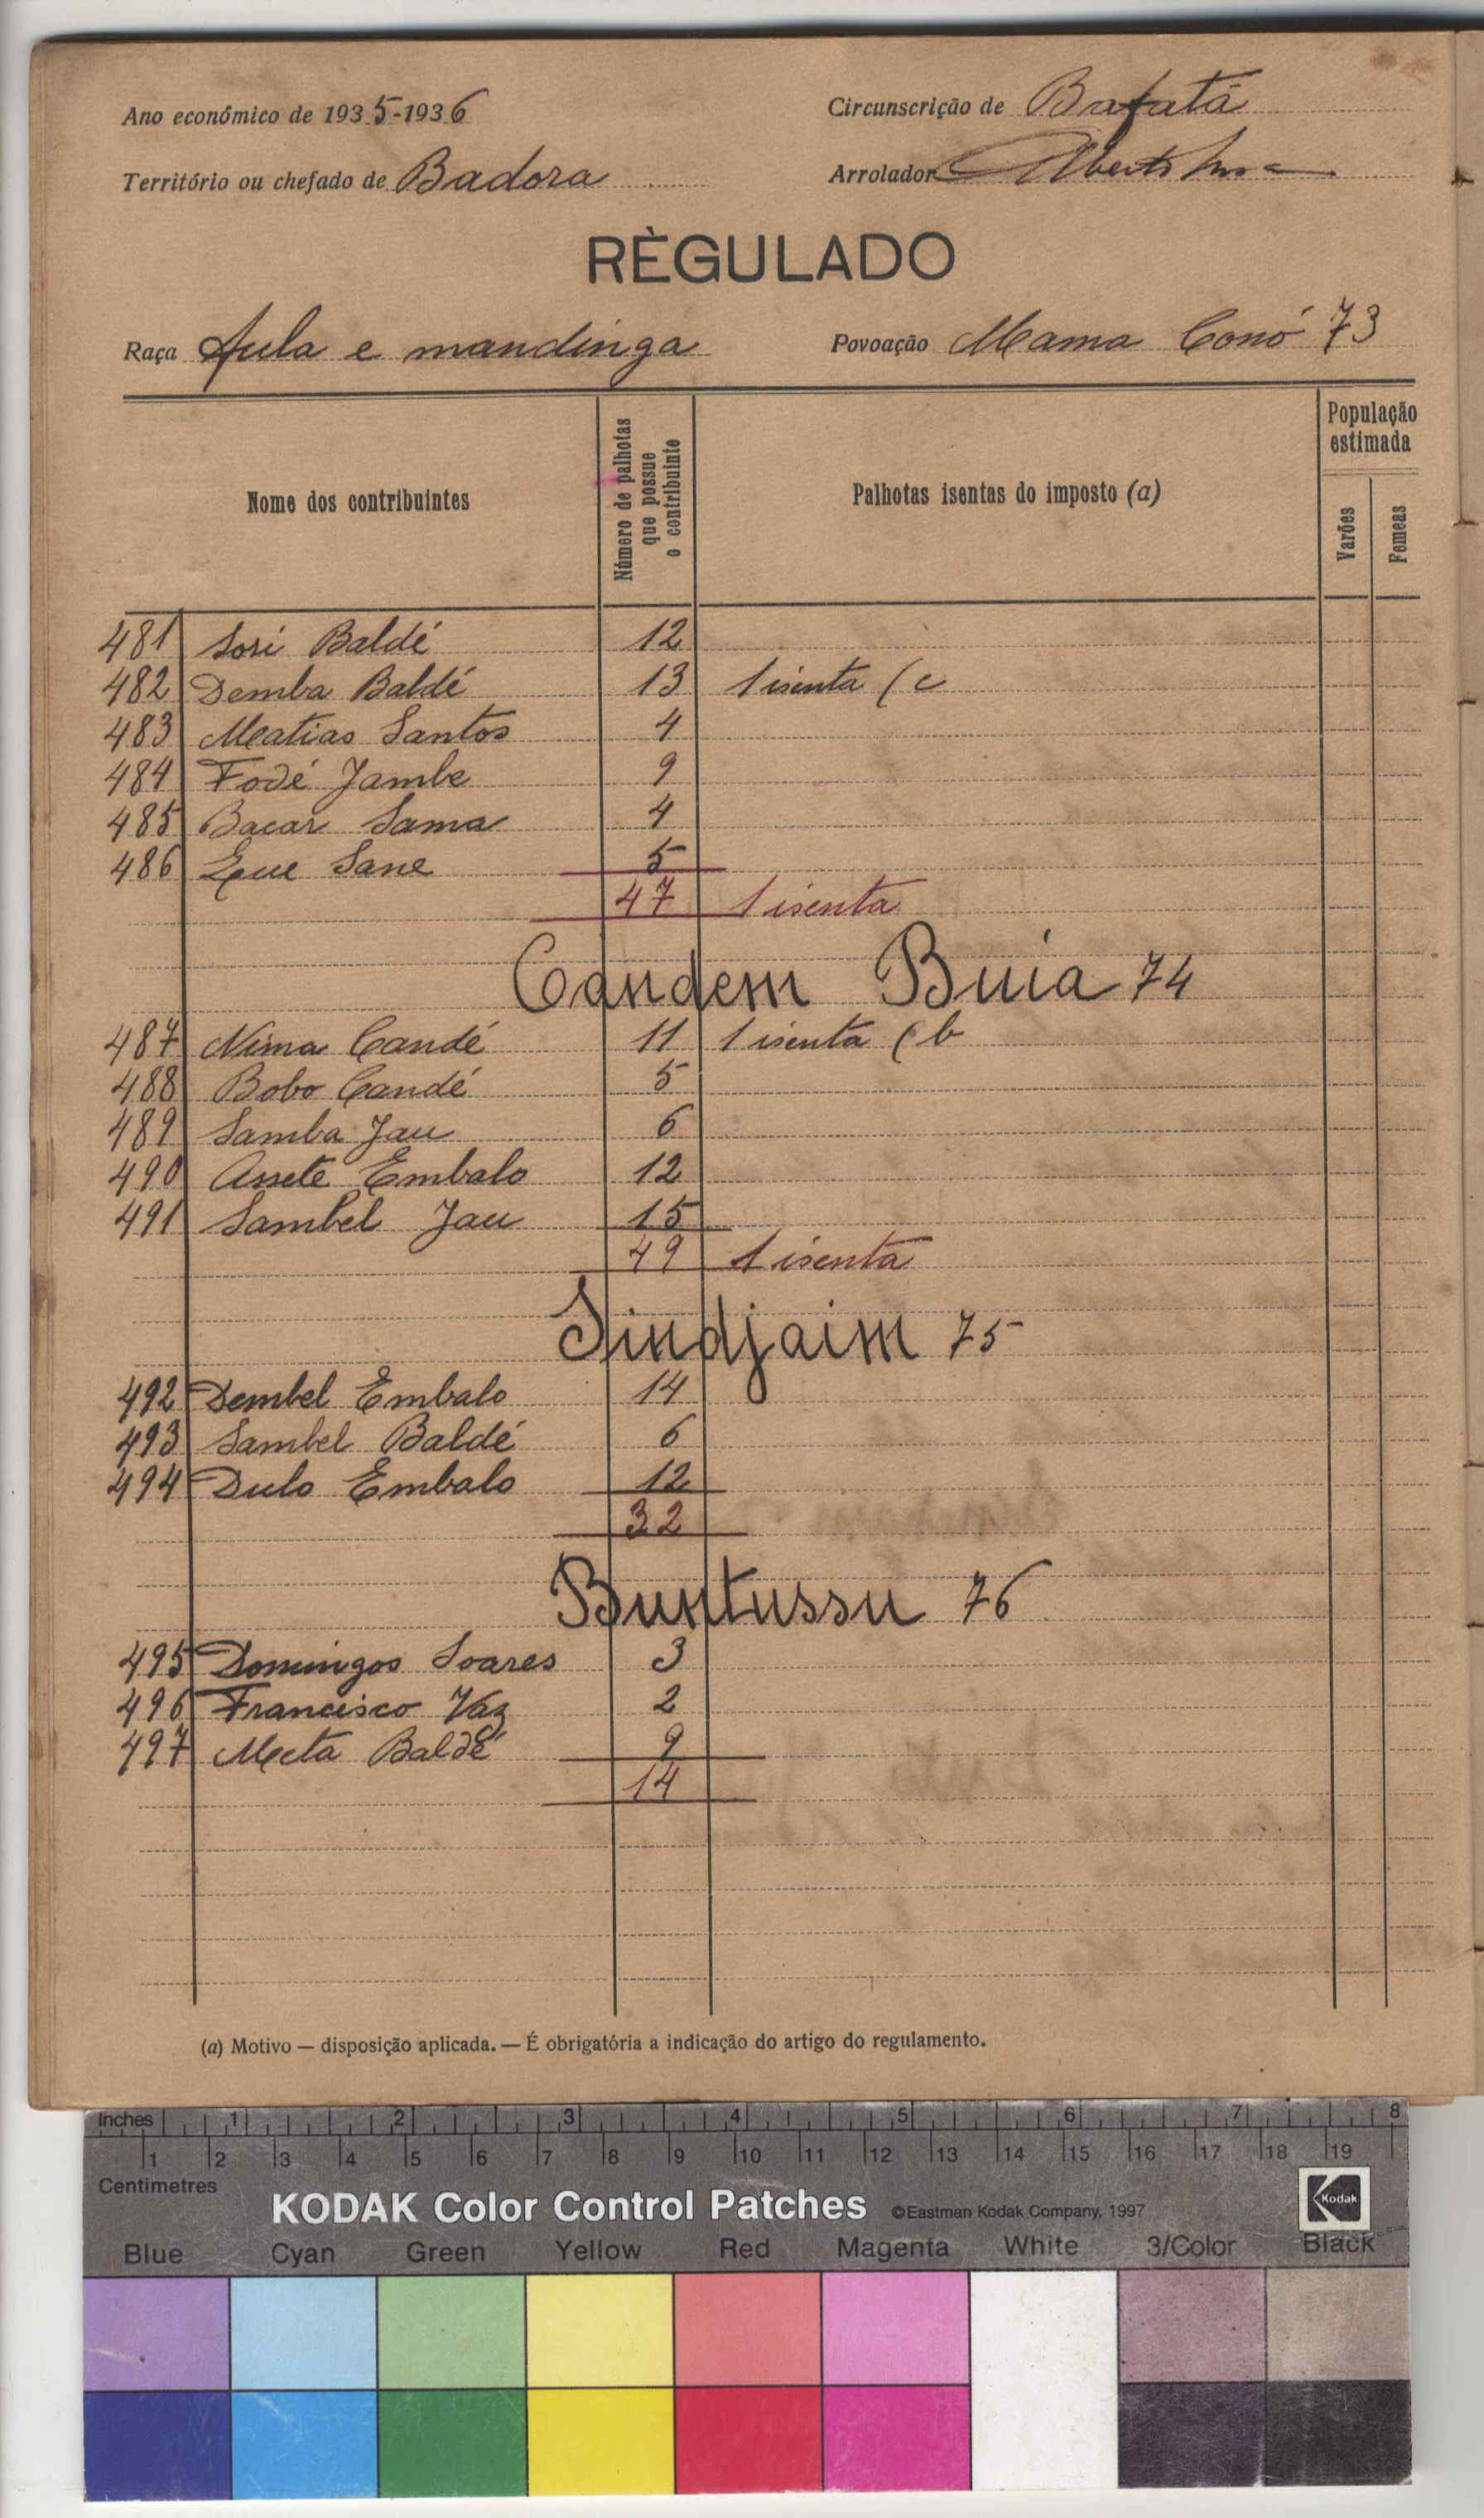 Ano económico de 1935-1936
Circunscrição de Bafatá
Território ou chefado de Badora
Arrolador Alberto
RÈGULADO
Raça fula e mandinga
Povoação Mama Conó 73
Nome dos contribuintes
Número de palhotas que possue o contribuinte
Palhotas isentas do imposto (a)
População estimada
Varões
Femeas
481 Sori Baldé 12
482 Demba Baldé 13 1 isenta (c
483 Matias Santos 4
484 Fodé Jambe 9
485 Bacar Sama 4
486 Sane 5
47 1 isenta
Candem Buia 74
487 Nima Candé 11 1 isenta (b
488 Bobo Candé 5
489 Samba Jau 6
490 Assete Embalo 12
491 Sambel Jau 15
49 1 isenta
Sindjaim 75
492 Dembel Embalo 14
493 Sambel Baldé 6
494 Dulo Embalo 12
32
Buntussu 76
495 Domingos Soares 3
496 Francisco Vaz 2
497 Meta Baldé 9
14
(a) Motivo — disposição aplicada. — É obrigatória a indicação do artigo do regulamento.
Inches 1 2 3 4 5 6 7 8
1 2 3 4 5 6 7 8 9 10 11 12 13 14 15 16 17 18 19
Centimetres
KODAK Color Control Patches ©Eastman Kodak Company, 1997 Kodak
Blue Cyan Green Yellow Red Magenta White 3/Color Black